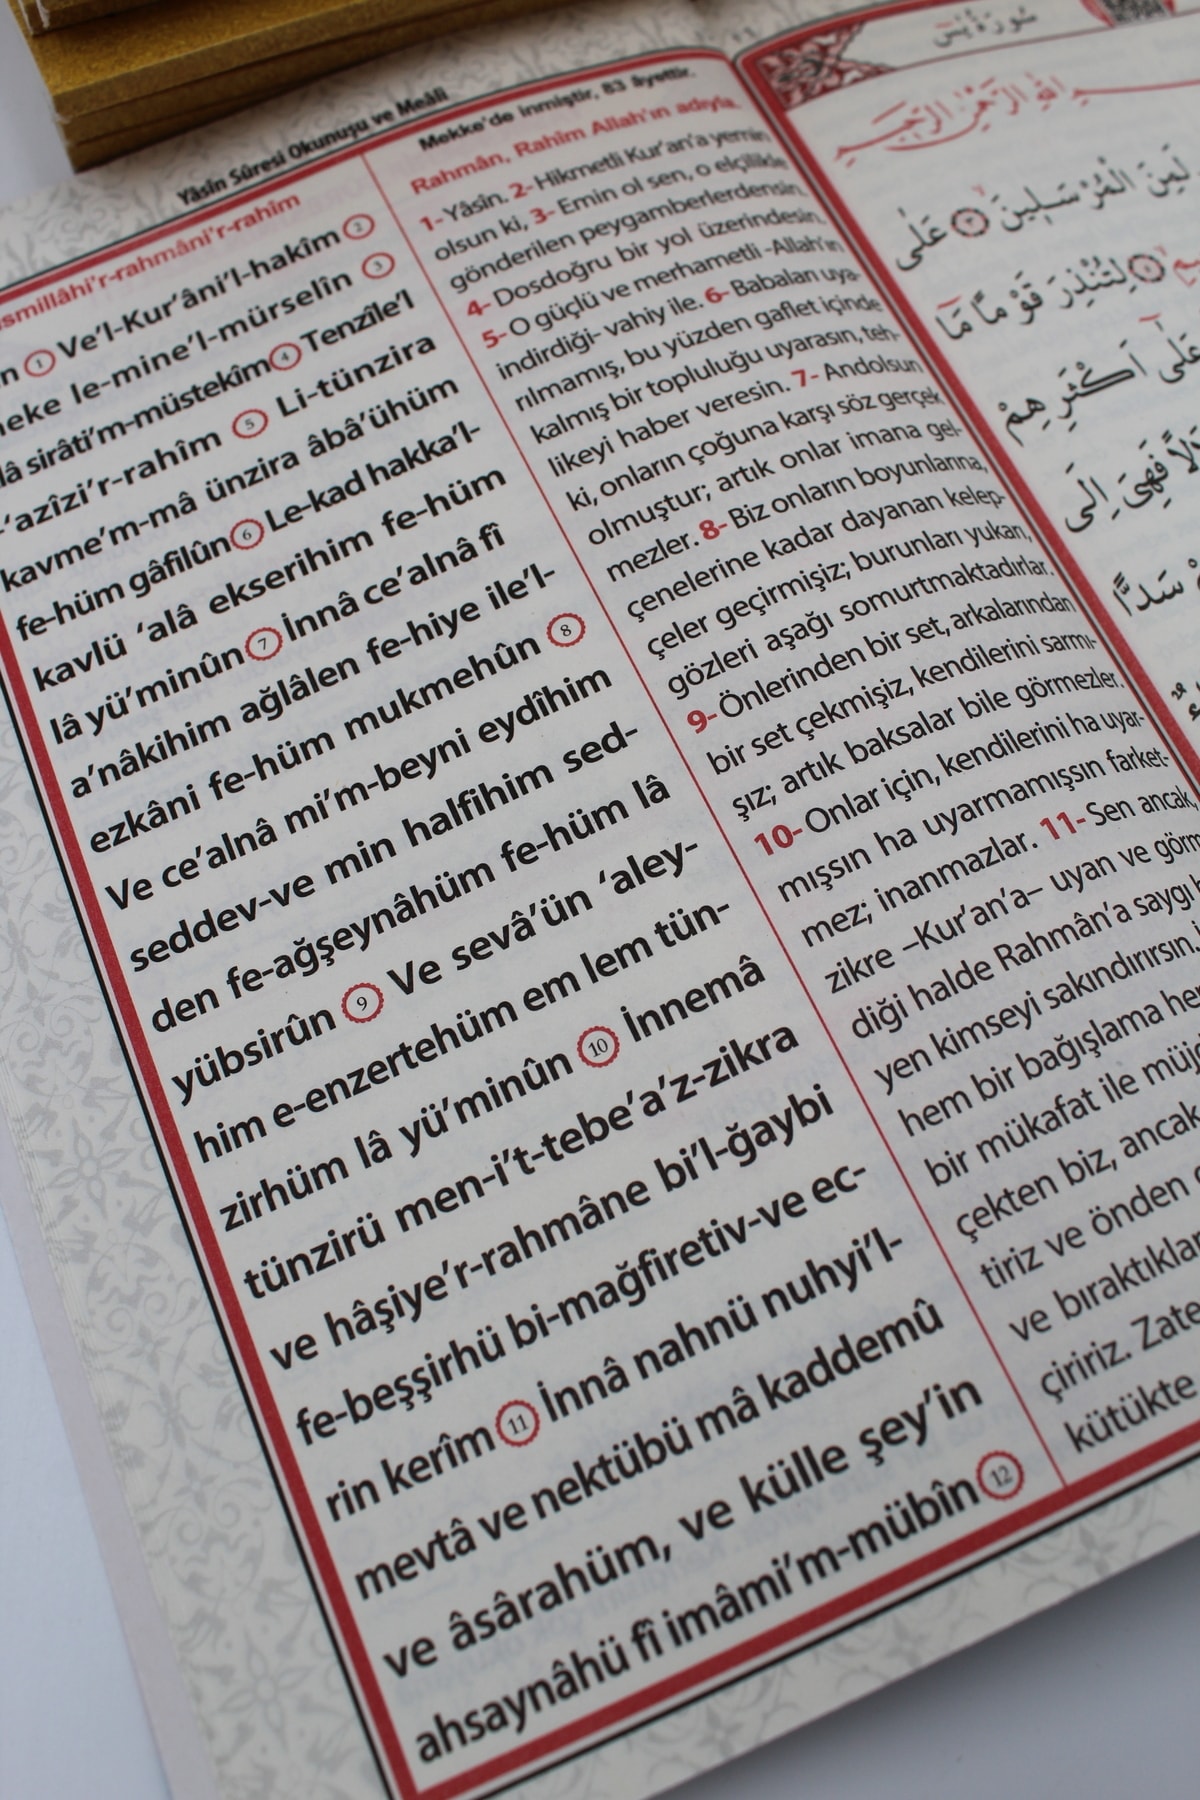 Yâsîn Sûresi Okunuşu ve Meâli
smillâhi'r-rahmâni'r-rahîm
n 1 Ve'l-Kur'âni'l-hakîm 2
neke le-mine'l-mürselîn 3
lâ sirâti'm-müstekîm 4 Tenzîle'l
-'azîzi'r-rahîm 5 Li-tünzira
kavme'm-mâ ünzira âbâ'ühüm
fe-hüm gâfilûn 6 Le-kad hakka'l-
kavlü 'alâ ekserihim fe-hüm
lâ yü'minûn 7 İnnâ ce'alnâ fî
a'nâkihim ağlâlen fe-hiye ile'l-
ezkâni fe-hüm mukmehûn 8
Ve ce'alnâ mi'm-beyni eydîhim
seddev-ve min halfihim sed-
den fe-ağşeynâhüm fe-hüm lâ
yübsirûn 9 Ve sevâ'ün 'aley-
him e-enzertehüm em lem tün-
zirhüm lâ yü'minûn 10 İnnemâ
tünzirü men-i't-tebe'a'z-zikra
ve hâşiye'r-rahmâne bi'l-ğaybi
fe-beşşirhü bi-mağfiretiv-ve ec-
rin kerîm 11 İnnâ nahnü nuhyi'l-
mevtâ ve nektübü mâ kaddemû
ve âsârahüm, ve külle şey'in
ahsaynâhü fî imâmi'm-mübîn 12
Mekke'de inmiştir, 83 âyettir.
Rahmân, Rahîm Allah'ın adıyla.
1- Yâsîn. 2- Hikmetli Kur'an'a yemin
olsun ki, 3- Emin ol sen, o elçilikle
gönderilen peygamberlerdensin.
4- Dosdoğru bir yol üzerindesin.
5- O güçlü ve merhametli -Allah'ın
indirdiği- vahiy ile. 6- Babaları uya-
rılmamış, bu yüzden gaflet içinde
kalmış bir topluluğu uyarasın, teh-
likeyi haber veresin. 7- Andolsun
ki, onların çoğuna karşı söz gerçek
olmuştur; artık onlar imana gel-
mezler. 8- Biz onların boyunlarına,
çenelerine kadar dayanan kelep-
çeler geçirmişiz; burunları yukarı,
gözleri aşağı somurtmaktadırlar.
9- Önlerinden bir set, arkalarından
bir set çekmişiz, kendilerini sarmı-
şız; artık baksalar bile görmezler.
10- Onlar için, kendilerini ha uyar-
mışsın ha uyarmamışsın farket-
mez; inanmazlar. 11- Sen ancak,
zikre –Kur'an'a– uyan ve görm
diği halde Rahmân'a saygı
yen kimseyi sakındırırsın,
hem bir bağışlama her
bir mükafat ile müjd
çekten biz, ancak
tiriz ve önden
ve bıraktıklar
çiririz. Zate
kütükte
سُورَةُ يٰسٓ
بِسْمِ اللّٰهِ الرَّحْمٰنِ الرَّحِيمِ
لَمِنَ الْمُرْسَلِينَ ٣ عَلٰى
٥ لِتُنْذِرَ قَوْمًا مَٓا
عَلٰٓى اَكْثَرِهِمْ
فَهِيَ اِلَى
سَدًّا